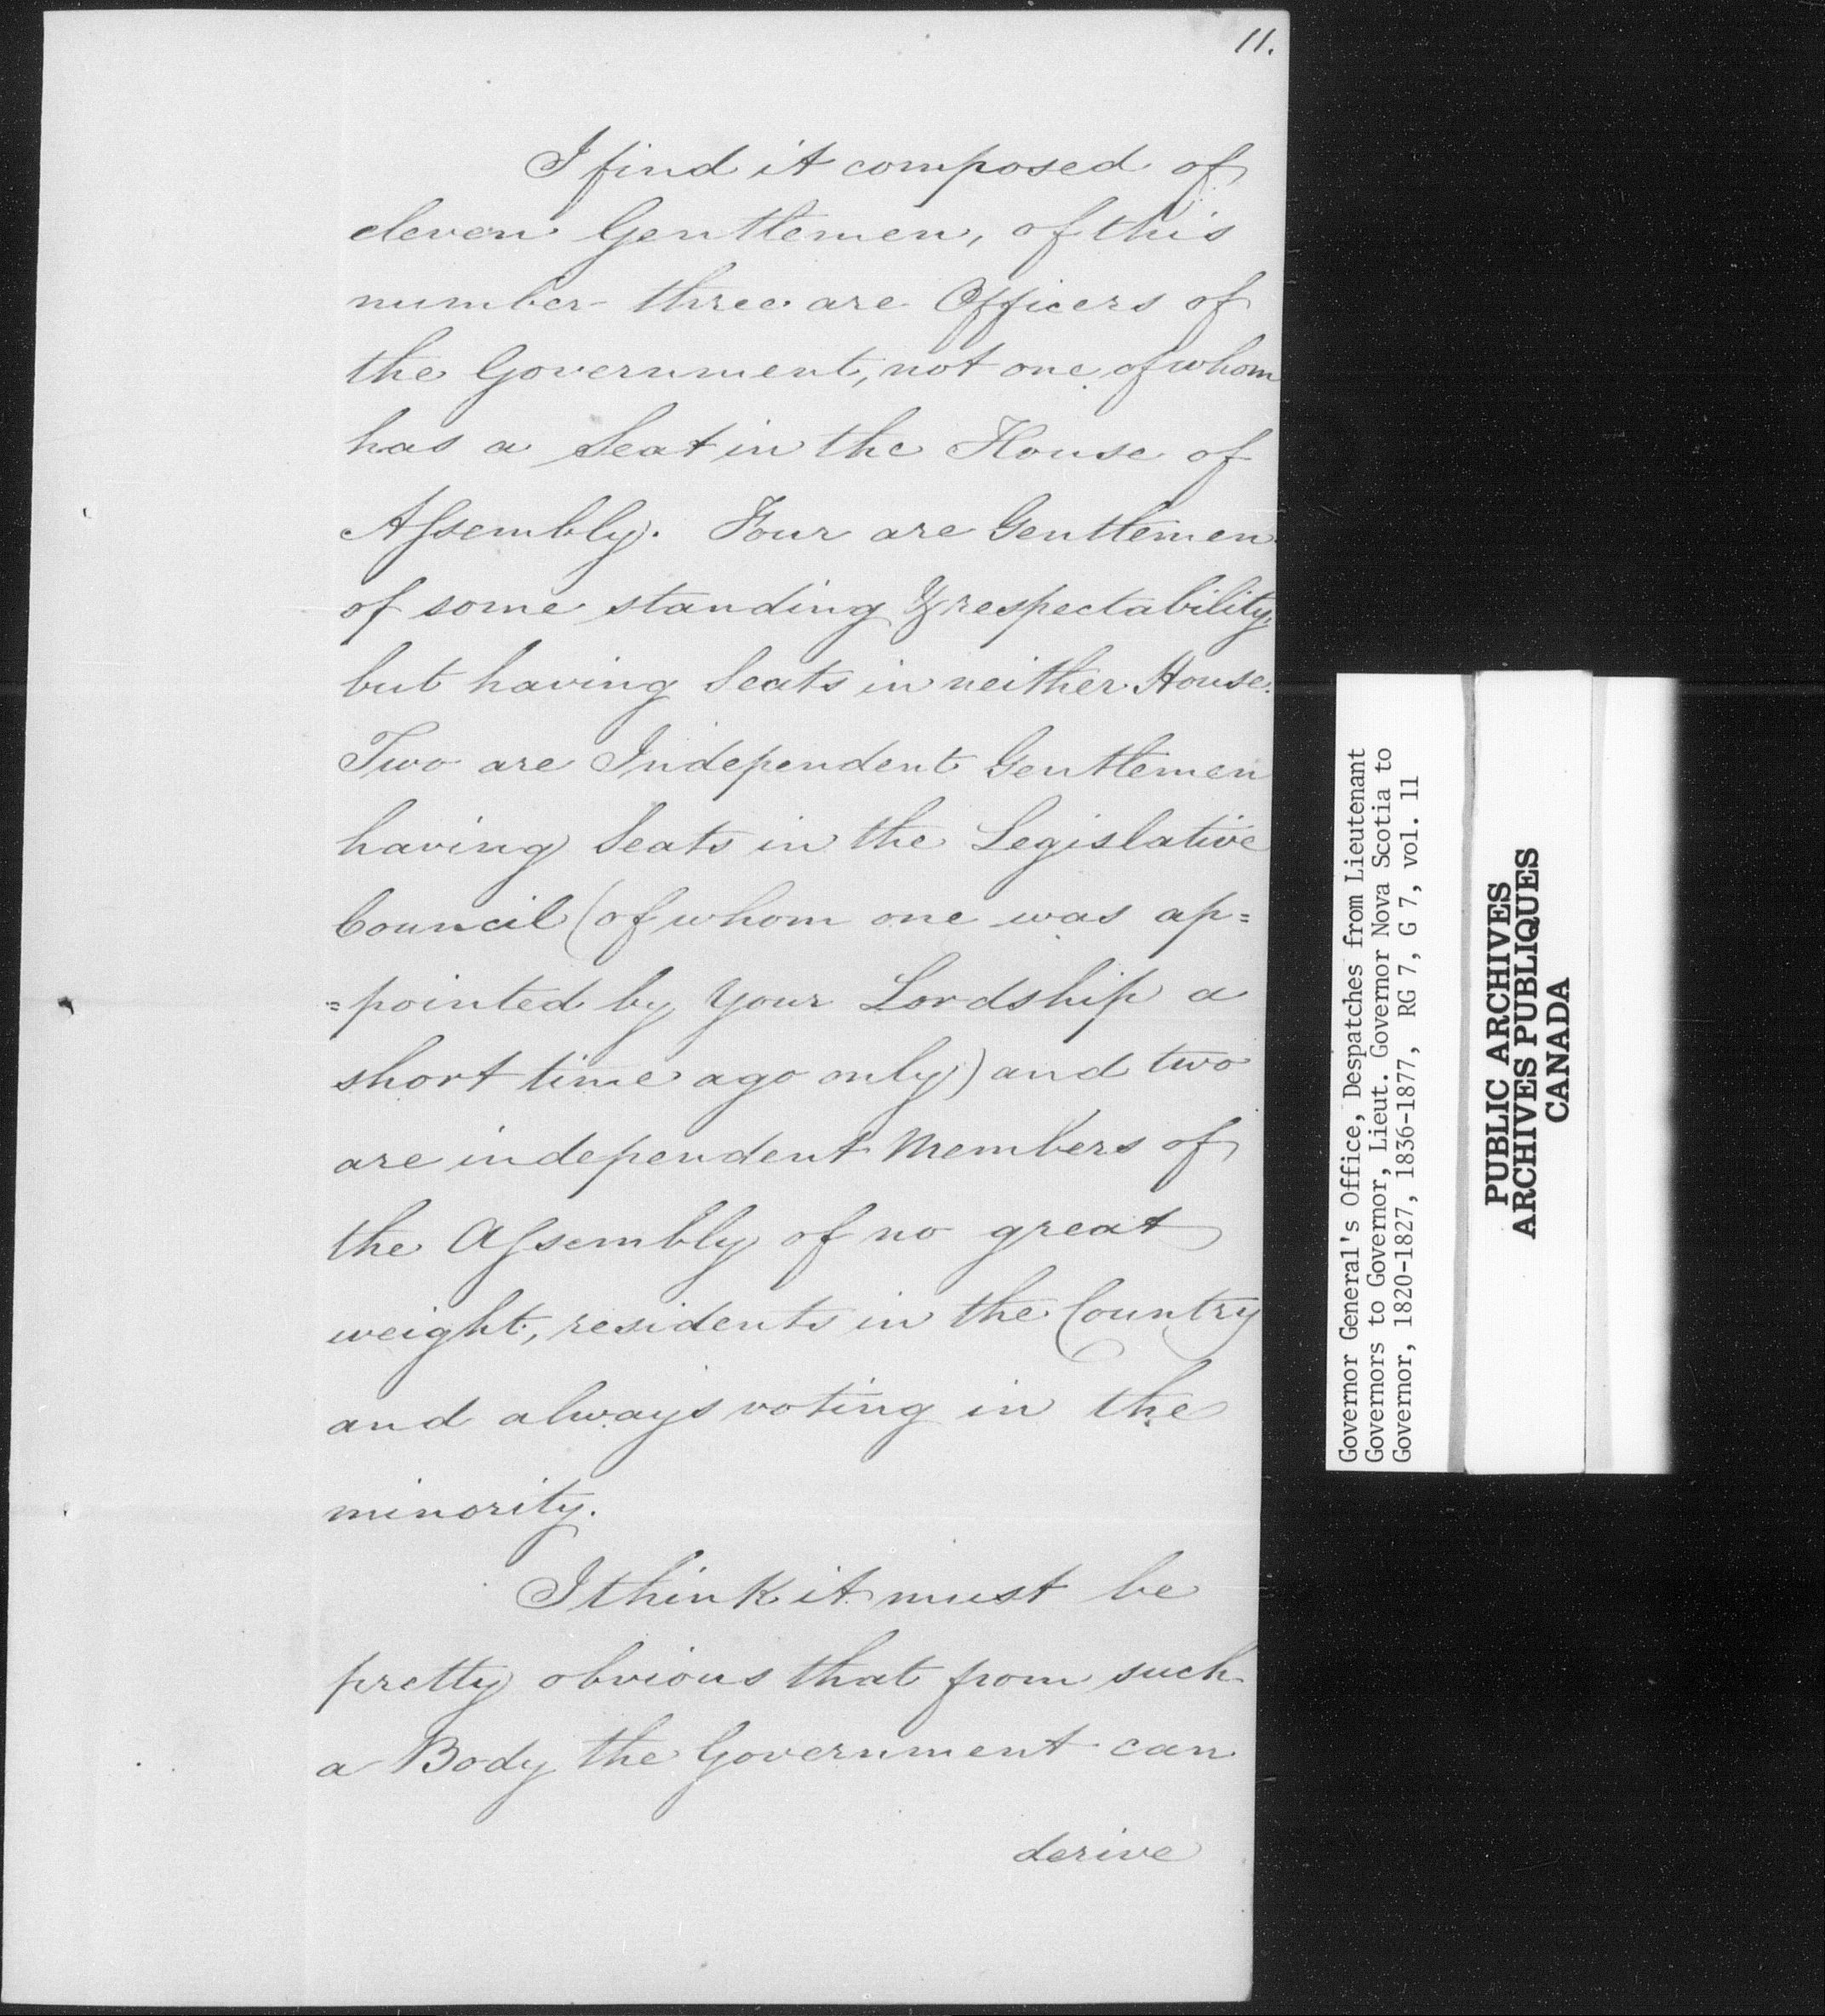 11.
I find it composed of
eleven Gentlemen, of this
number three are Officers of
the Government, not one of whom
has a Seat in the House of
Assembly. Four are Gentlemen
of some standing & respectability,
but having Seats in neither House.
Two are Independent Gentlemen
having Seats in the Legislative
Council (of whom one was ap=
=pointed by Your Lordship a
short time ago only) and two
are independent Members of
the Assembly of no great
weight, residents in the Country
and always voting in the
minority.
I think it must be
pretty obvious that from such
a Body the Government can
derive
Governor General's Office, Despatches from Lieutenant
Governors to Governor, Lieut. Governor Nova Scotia to
Governor, 1820-1827, 1836-1877, RG 7, G 7, vol. 11
PUBLIC ARCHIVES
ARCHIVES PUBLIQUES
CANADA